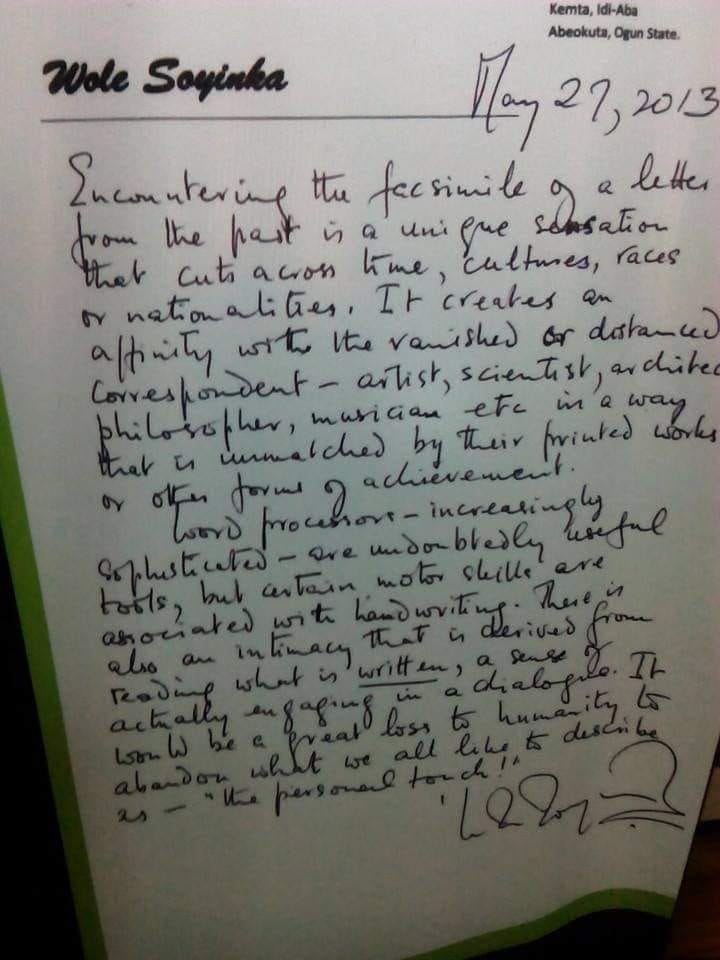 Kemta, Idi-Aba
Abeokuta, Ogun State.
Wole Soyinka
May 27, 2013
Encountering the facsimile of a letter
from the past is a unique sensation
that cuts across time, cultures, races
or nationalities. It creates an
affinity with the vanished or distanced
correspondent – artist, scientist, architec
philosopher, musician etc in a way
that is unmatched by their printed works
or other forms of achievement.
Word processors – increasingly
sophisticated – are undoubtedly useful
tools, but certain motor skills are
associated with handwriting. There is
also an intimacy that is derived from
reading what is written, a sense of
actually engaging in a dialogue. It
would be a great loss to humanity to
abandon what we all like to describe
as – "the personal touch!"